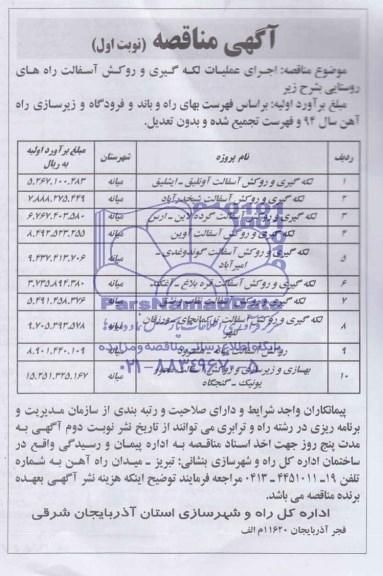 آگهی مناقصه (نوبت اول)
موضوع مناقصه: اجرای عملیات لکه گیری و روکش آسفالت راه های
روستایی بشرح زیر
مبلغ برآورد اولیه: براساس فهرست بهای راه و باند و فرودگاه و زیرسازی راه
آهن سال ۹۴ و فهرست تجمیع شده و بدون تعدیل.
ردیف نام پروژه شهرستان مبلغ برآورد اولیه به ریال
۱ لکه گیری و روکش آسفالت اونلیق ـ ایشلیق میانه ۵.۲۶۷.۱۰۰.۲۸۳
۲ لکه گیری و روکش آسفالت شیخدرآباد میانه ۷.۸۸۸.۲۷۵.۴۴۹
۳ لکه گیری و روکش آسفالت گرده لاین ـ ارس میانه ۶.۷۶۷.۴۰۳.۵۸۰
۴ لکه گیری و روکش آسفالت آوین میانه ۸.۴۹۳.۵۲۳.۲۵۵
۵ لکه گیری و روکش آسفالت گوندوغدی ـ امیرآباد میانه ۹.۴۳۷.۴۱۳.۷۰۶
۶ لکه گیری و روکش آسفالت قره بلاغ ـ میانه ۳.۷۳۵.۸۹۴.۳۸۰
۷ لکه گیری و روکش آسفالت میانه ۵.۴۹۱.۲۵۸.۳۷۶
۸ لکه گیری و روکش آسفالت ترکمانچای میانه ۹.۷۰۵.۳۹۳.۵۷۸
۹ روکش آسفالت میانه ـ میانه ۸.۹۰۱.۴۴۰.۱۰۹
۱۰ بهسازی و زیرسازی و روکش آسفالت یونیک ـ گنجگاه میانه ۱۵.۲۵۱.۳۲۵.۱۶۷
ParsNamadData
پایگاه اطلاع رسانی مناقصه و مزایده
۰۲۱-۸۸۳۴۹۶۷۰-۵
پیمانکاران واجد شرایط و دارای صلاحیت و رتبه بندی از سازمان مدیریت و
برنامه ریزی در رشته راه و ترابری می توانند از تاریخ نشر نوبت دوم آگهی به
مدت پنج روز جهت اخذ اسناد مناقصه به اداره پیمان و رسیدگی واقع در
ساختمان اداره کل راه و شهرسازی بنشانی: تبریز ـ میدان راه آهن به شماره
تلفن ۱۹ـ ۴۴۵۱۰۱۱ ـ ۰۴۱۳ مراجعه فرمایند توضیح اینکه هزینه نشر آگهی بعهده
برنده مناقصه می باشد.
اداره کل راه و شهرسازی استان آذربایجان شرقی
فجر آذربایجان ۱۱۶۲۰ م الف